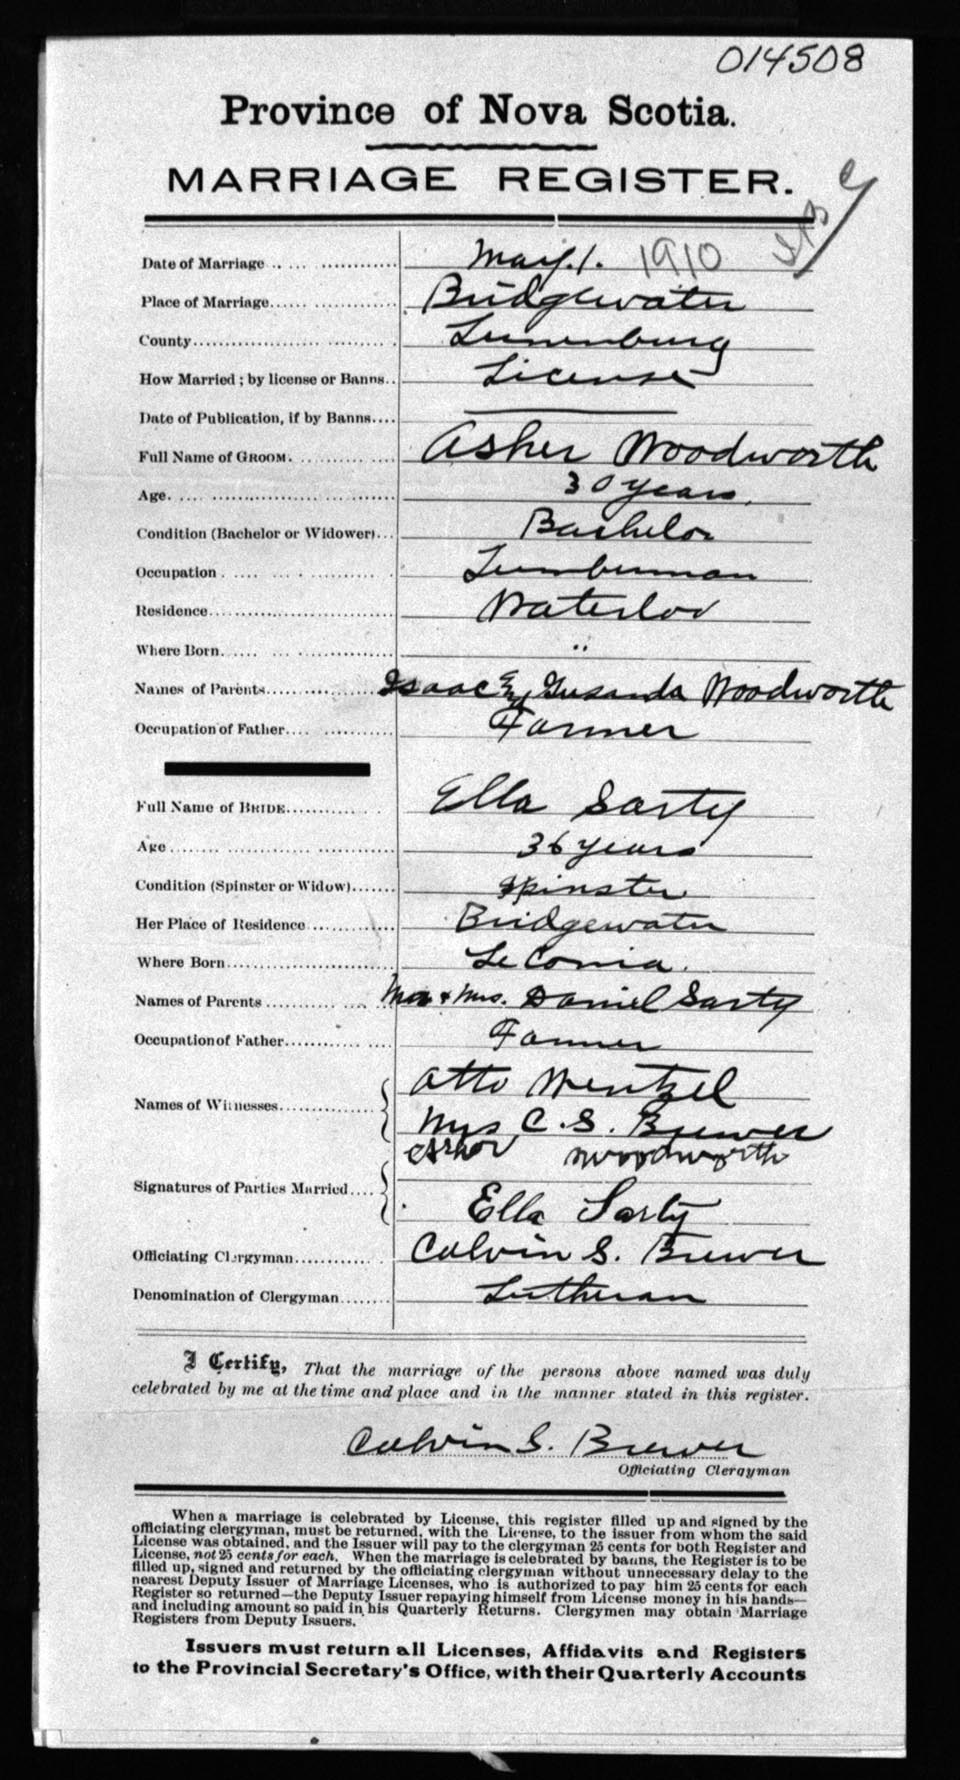 014508
Province of Nova Scotia.
MARRIAGE REGISTER.
Date of Marriage May. 1. 1910
Place of Marriage Bridgewater
County Lunenburg
How Married ; by license or Banns.. License
Date of Publication, if by Banns....
Full Name of GROOM. Asher Woodworth
Age. 30 years.
Condition (Bachelor or Widower)... Bachelor
Occupation Lumberman
Residence Waterloo
Where Born. "
Names of Parents Isaac & Woodworth
Occupation of Father Farmer
Full Name of BRIDE Ella Sarty
Age 36 years
Condition (Spinster or Widow) Spinster
Her Place of Residence Bridgewater
Where Born Le Conia.
Names of Parents Mr & Mrs. Daniel Sarty
Occupation of Father Farmer
Names of Witnesses Otto Wentzel
Mrs C. S. Brewer
Woodworth
Signatures of Parties Married
Ella Sarty
Officiating Clergyman Calvin S. Brewer
Denomination of Clergyman Lutheran
I Certify, That the marriage of the persons above named was duly
celebrated by me at the time and place and in the manner stated in this register.
Calvin S. Brewer
Officiating Clergyman
When a marriage is celebrated by License, this register filled up and signed by the
officiating clergyman, must be returned, with the License, to the issuer from whom the said
License was obtained, and the Issuer will pay to the clergyman 25 cents for both Register and
License, not 25 cents for each. When the marriage is celebrated by banns, the Register is to be
filled up, signed and returned by the officiating clergyman without unnecessary delay to the
nearest Deputy Issuer of Marriage Licenses, who is authorized to pay him 25 cents for each
Register so returned—the Deputy Issuer repaying himself from License money in his hands—
and including amount so paid in his Quarterly Returns. Clergymen may obtain Marriage
Registers from Deputy Issuers.
Issuers must return all Licenses, Affidavits and Registers
to the Provincial Secretary's Office, with their Quarterly Accounts